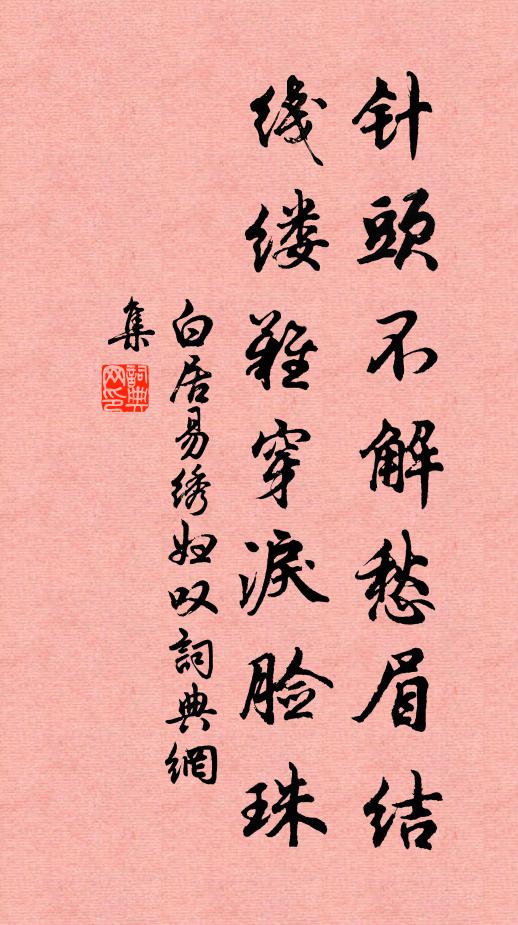 针頭不解愁眉结
线缕難穿淚脸珠
白居易绣妇叹詞典網
集
詞典
网印